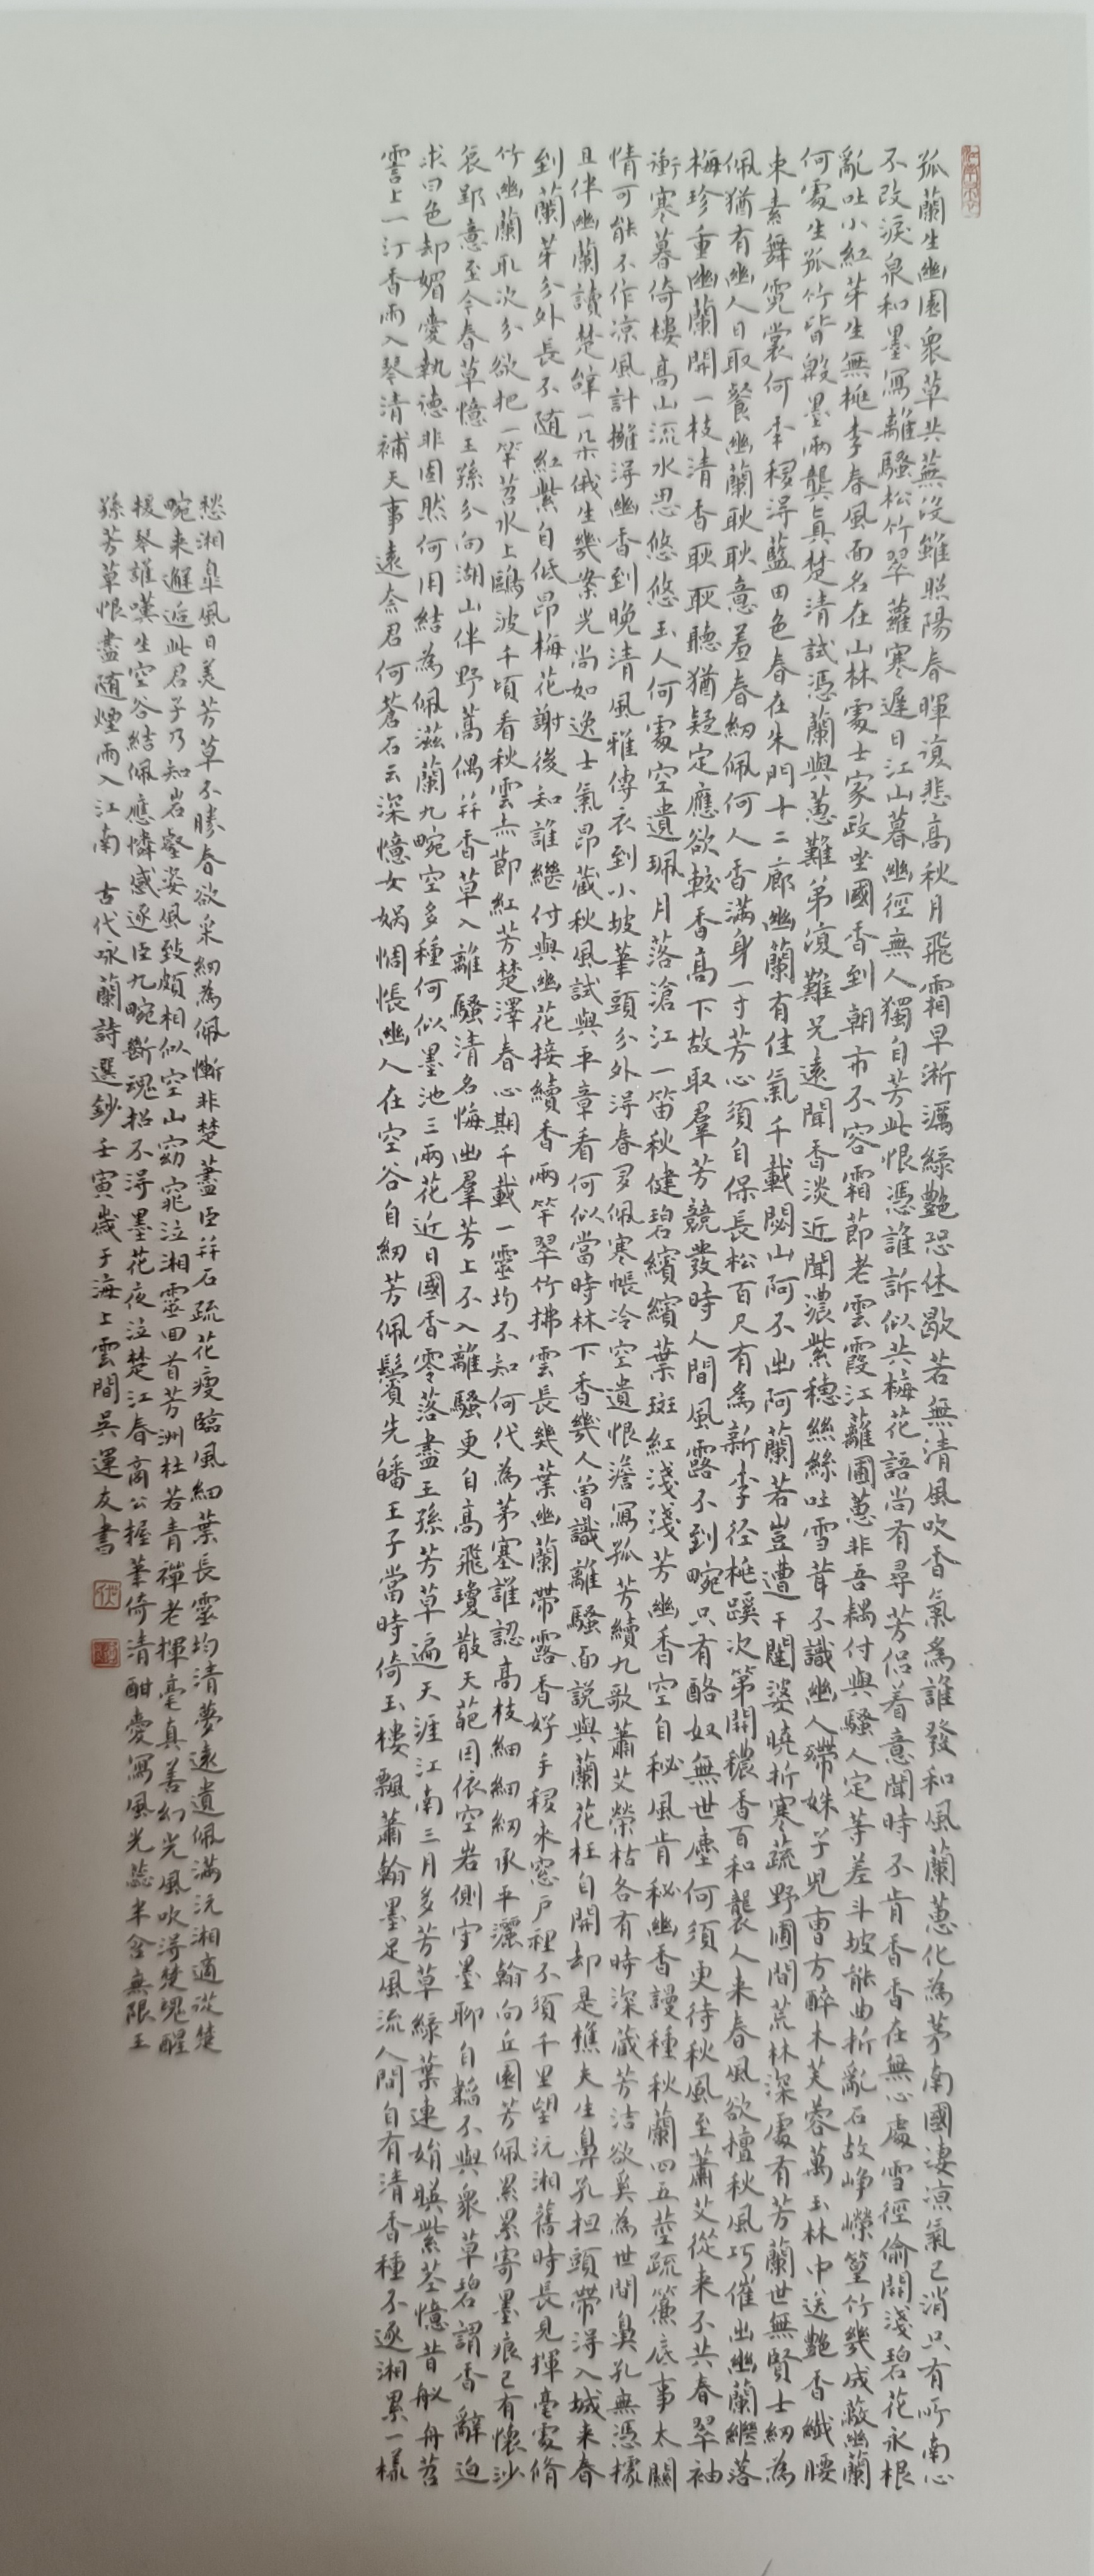 孤蘭生幽園眾草共蕪沒雖照陽春暉復悲高秋月飛霜早淅瀝綠艷恐休歇若無清風吹香氣為誰發和風蘭蕙化為茅南國淒涼氣已消只有所南心
不改淚泉和墨寫離騷松竹翠蘿寒遲日江山暮幽徑無人獨自芳此恨憑誰訴似共梅花語尚有尋芳侶着意聞時不肯香香在無心處雪徑偷開淺碧花氷根
亂吐小紅芽生無桃李春風面名在山林處士家政坐國香到朝市不容霜節老雲霞江蘺圃蕙非吾耦付與騷人定等差斗坡能曲折亂石故崢嶸篁竹幾成蔽幽蘭
何處生孤竹皆殽墨兩龔真楚清試憑蘭與蕙難弟復難兄遠聞香淡近聞濃紫穗絲絲吐雪茸不識幽人帶姝子兒曹方醉木芙蓉萬玉林中送艷香纖腰
束素舞霓裳何年移得藍田色春在朱門十二廊幽蘭有佳氣千載閟山阿不出阿蘭若豈遭干闥婆曉折寒蔬野圃間荒林深處有芳蘭世無賢士紉為
佩猶有幽人日取餐幽蘭耿耿意羞春紉佩何人香滿身一寸芳心須自保長松百尺有為新李徑桃蹊次第開穠香百和襲人来春風欲擅秋風巧催出幽蘭繼落
梅珍重幽蘭開一枝清香耿耿聽猶疑定應欲較香高下故取羣芳競發時人間風露不到畹只有酪奴無世塵何須更待秋風至蕭艾從来不共春翠袖
衝寒暮倚樓高山流水思悠悠玉人何處空遺珮月落滄江一笛秋健碧繽繽葉斑紅淺淺芳幽香空自秘風肯秘幽香謾種秋蘭四五莖疏簾底事太關
情可能不作涼風計擁得幽香到晚清風雅傳衣到小坡筆頭分外得春多佩寒帳冷空遺恨澹寫孤芳續九歌蕭艾榮枯各有時深藏芳洁欲奚為世間鼻孔無憑據
且伴幽蘭讀楚辭一朵俄生幾案光尚如逸士氣昂藏秋風試與平章看何似當時林下香幾人曾識離騷面說與蘭花枉自開却是樵夫生鼻孔担頭帶得入城来春
到蘭芽分外長不随紅紫自低昂梅花謝後知誰繼付與幽花接續香兩竿翠竹拂雲長幾葉幽蘭帶露香好手移来窓戶裡不須千里望沅湘舊時長見揮毫處脩
竹幽蘭取次分欲把一竿苕水上鷗波千頃看秋雲赤節紅芳楚澤春心期千載一靈均不知何代為茅塞誰認高枝細細紉承平灑翰向丘園芳佩累累寄墨痕已有懷沙
哀郢意至今春草憶王孫分向湖山伴野蒿偶并香草入離騷清名悔出羣芳上不入離騷更自高飛瓊散天葩因依空岩側守墨聊自韜不與衆草碧謂香 辭迫
求曰色却媚愛執德非固然何用結為佩滋蘭九畹空多種何似墨池三兩花近日國香零落盡王孫芳草遍天涯江南三月多芳草綠葉連娟映紫莖憶昔舣舟苕
霅上一汀香雨入琴清補天事遠奈君何蒼石云深憶女媧惆悵幽人在空谷自紉芳佩鬢先皤王子當時倚玉樓飄蕭翰墨足風流人間自有清香種不逐湘累一樣
愁湘皐風日美芳草不勝春欲采紉為佩慚非楚藎臣并石疏花瘦臨風細葉長靈均清夢遠遺佩滿沅湘適從楚
畹来邂逅此君子乃知岩壑姿風致頗相似空山窈窕泣湘靈回首芳洲杜若青禪老揮毫真善幻光風吹得楚魂醒
援琴誰嘆生空谷結佩應憐感逐臣九畹斷魂招不得墨花夜泣楚江春商公握筆倚清酣愛寫風光蕊半含無限王
孫芳草恨盡随煙雨入江南 古代咏蘭詩選鈔壬寅歲于海上雲間吳運友書